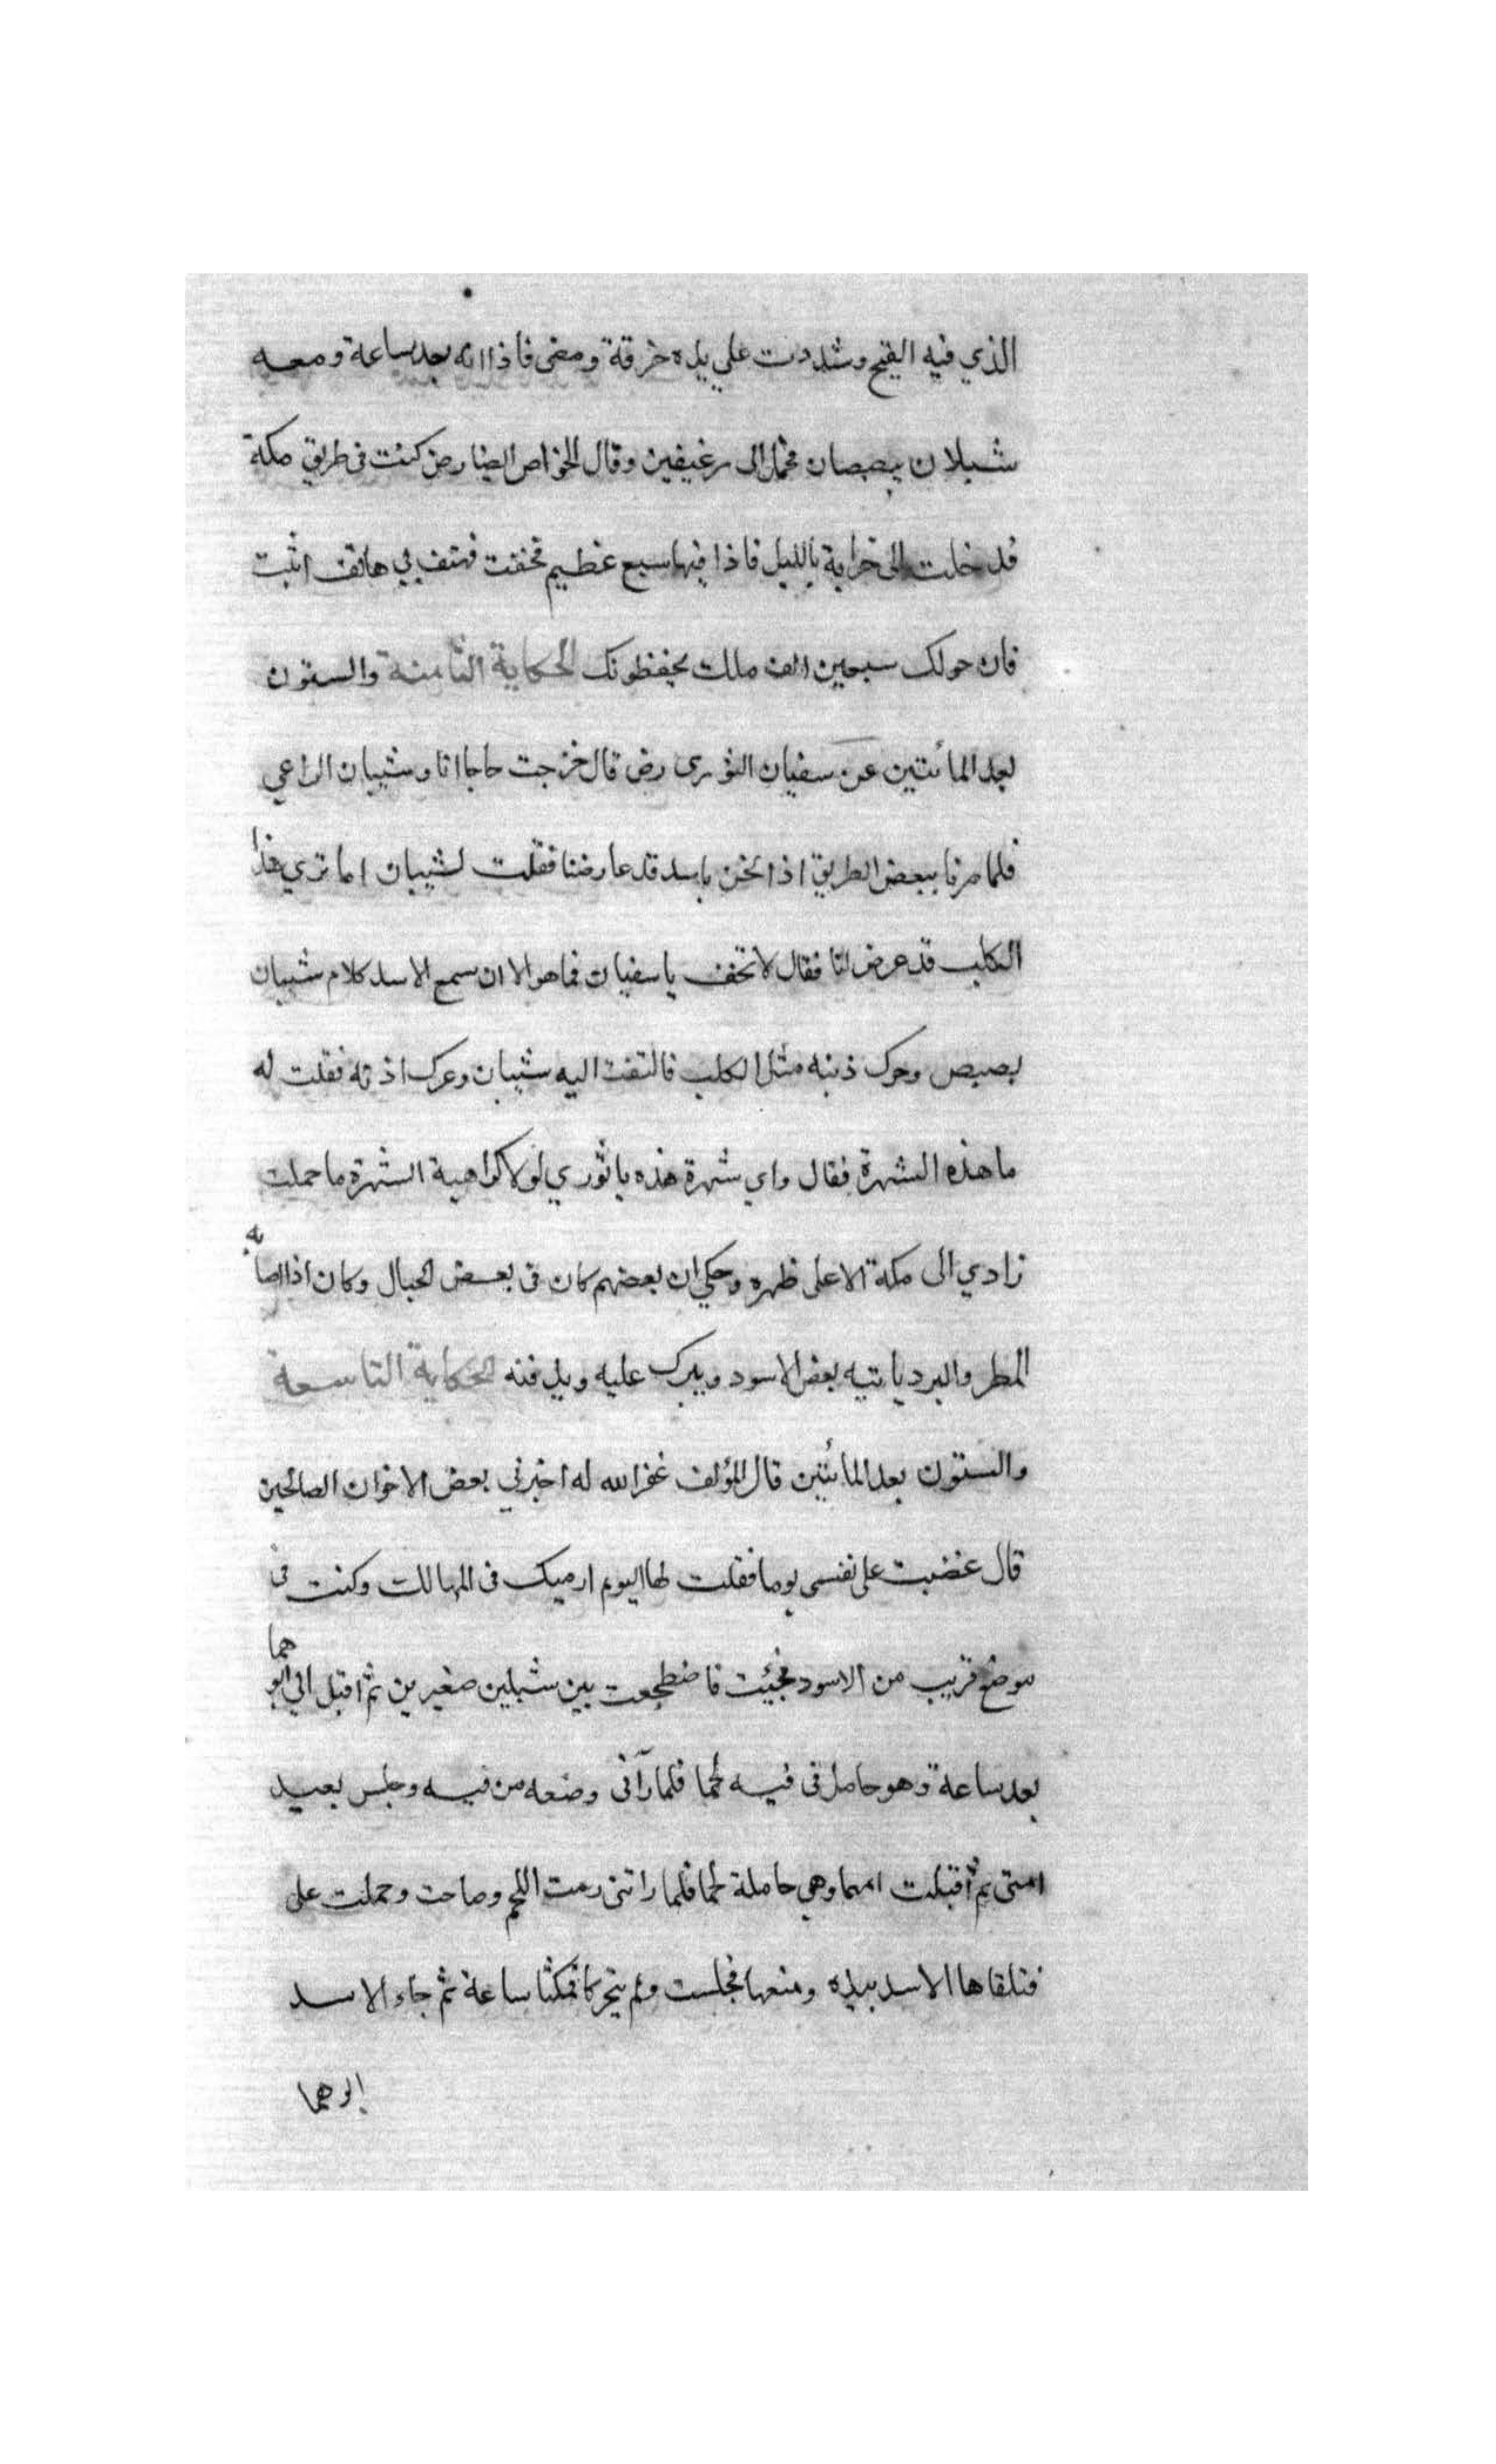 الذي فيه القيح وشددت علي يده خرقة ومضى فاذا انه بعد ساعة ومعه
شبلان يبصبصان فحملا الى رغيفين وقال الخواص ايضا رض كنت فى طريق مكة
فدخلت الى خرابة بالليل فاذا فيها سبع عظيم فخفت فهتف بي هاتف اثبت
فان حولك سبعين الف ملك يحفظونك الحكاية الثامنة والستون
بعد المأئتين عن سفيان الثورى رض قال خرجت حاجا انا وشيبان الراعي
فلما صرنا ببعض الطريق اذا نحن باسد قد عارضنا فقلت لشيبان اما تري هذا
الكلب قد عرض لنا فقال لا تخف يا سفيان فما هو الا ان سمع الاسد كلام شيبان
بصبص وحرك ذنبه مثل الكلب فالتفت اليه شيبان وعرك اذنه فقلت له
ما هذه الشهرة فقال واي شهرة هذه يا ثوري لولا كراهية الشهرة ما حملت
زادي الى مكة الا على ظهره وحكي ان بعضهم كان فى بعض الجبال وكان اذا اصابه
المطر والبرد يأتيه بعض الاسود ويبرك عليه ويدفئه الحكاية التاسعة
والستون بعد المأئتين قال المؤلف غفر الله له اخبرني بعض الاخوان الصالحين
قال غضبت على نفسى يوما فقلت لها اليوم ارميك فى المهالك وكنت فى
موضع قريب من الاسود فجيئت فاضطجعت بين شبلين صغيرين ثم اقبل الي ابوهما
بعد ساعة وهو حامل فى فيه لحما فلما رآنى وضعه من فيه وجلس بعيد
امنى ثم اقبلت امهما وهي حاملة لحما فلما راتنى رمت اللحم وصاحت وحملت على
فتلقاها الاسد بيده ومنعها فجلست ولم يتحركا فمكثا ساعة ثم جاء الاسد
ابوهما